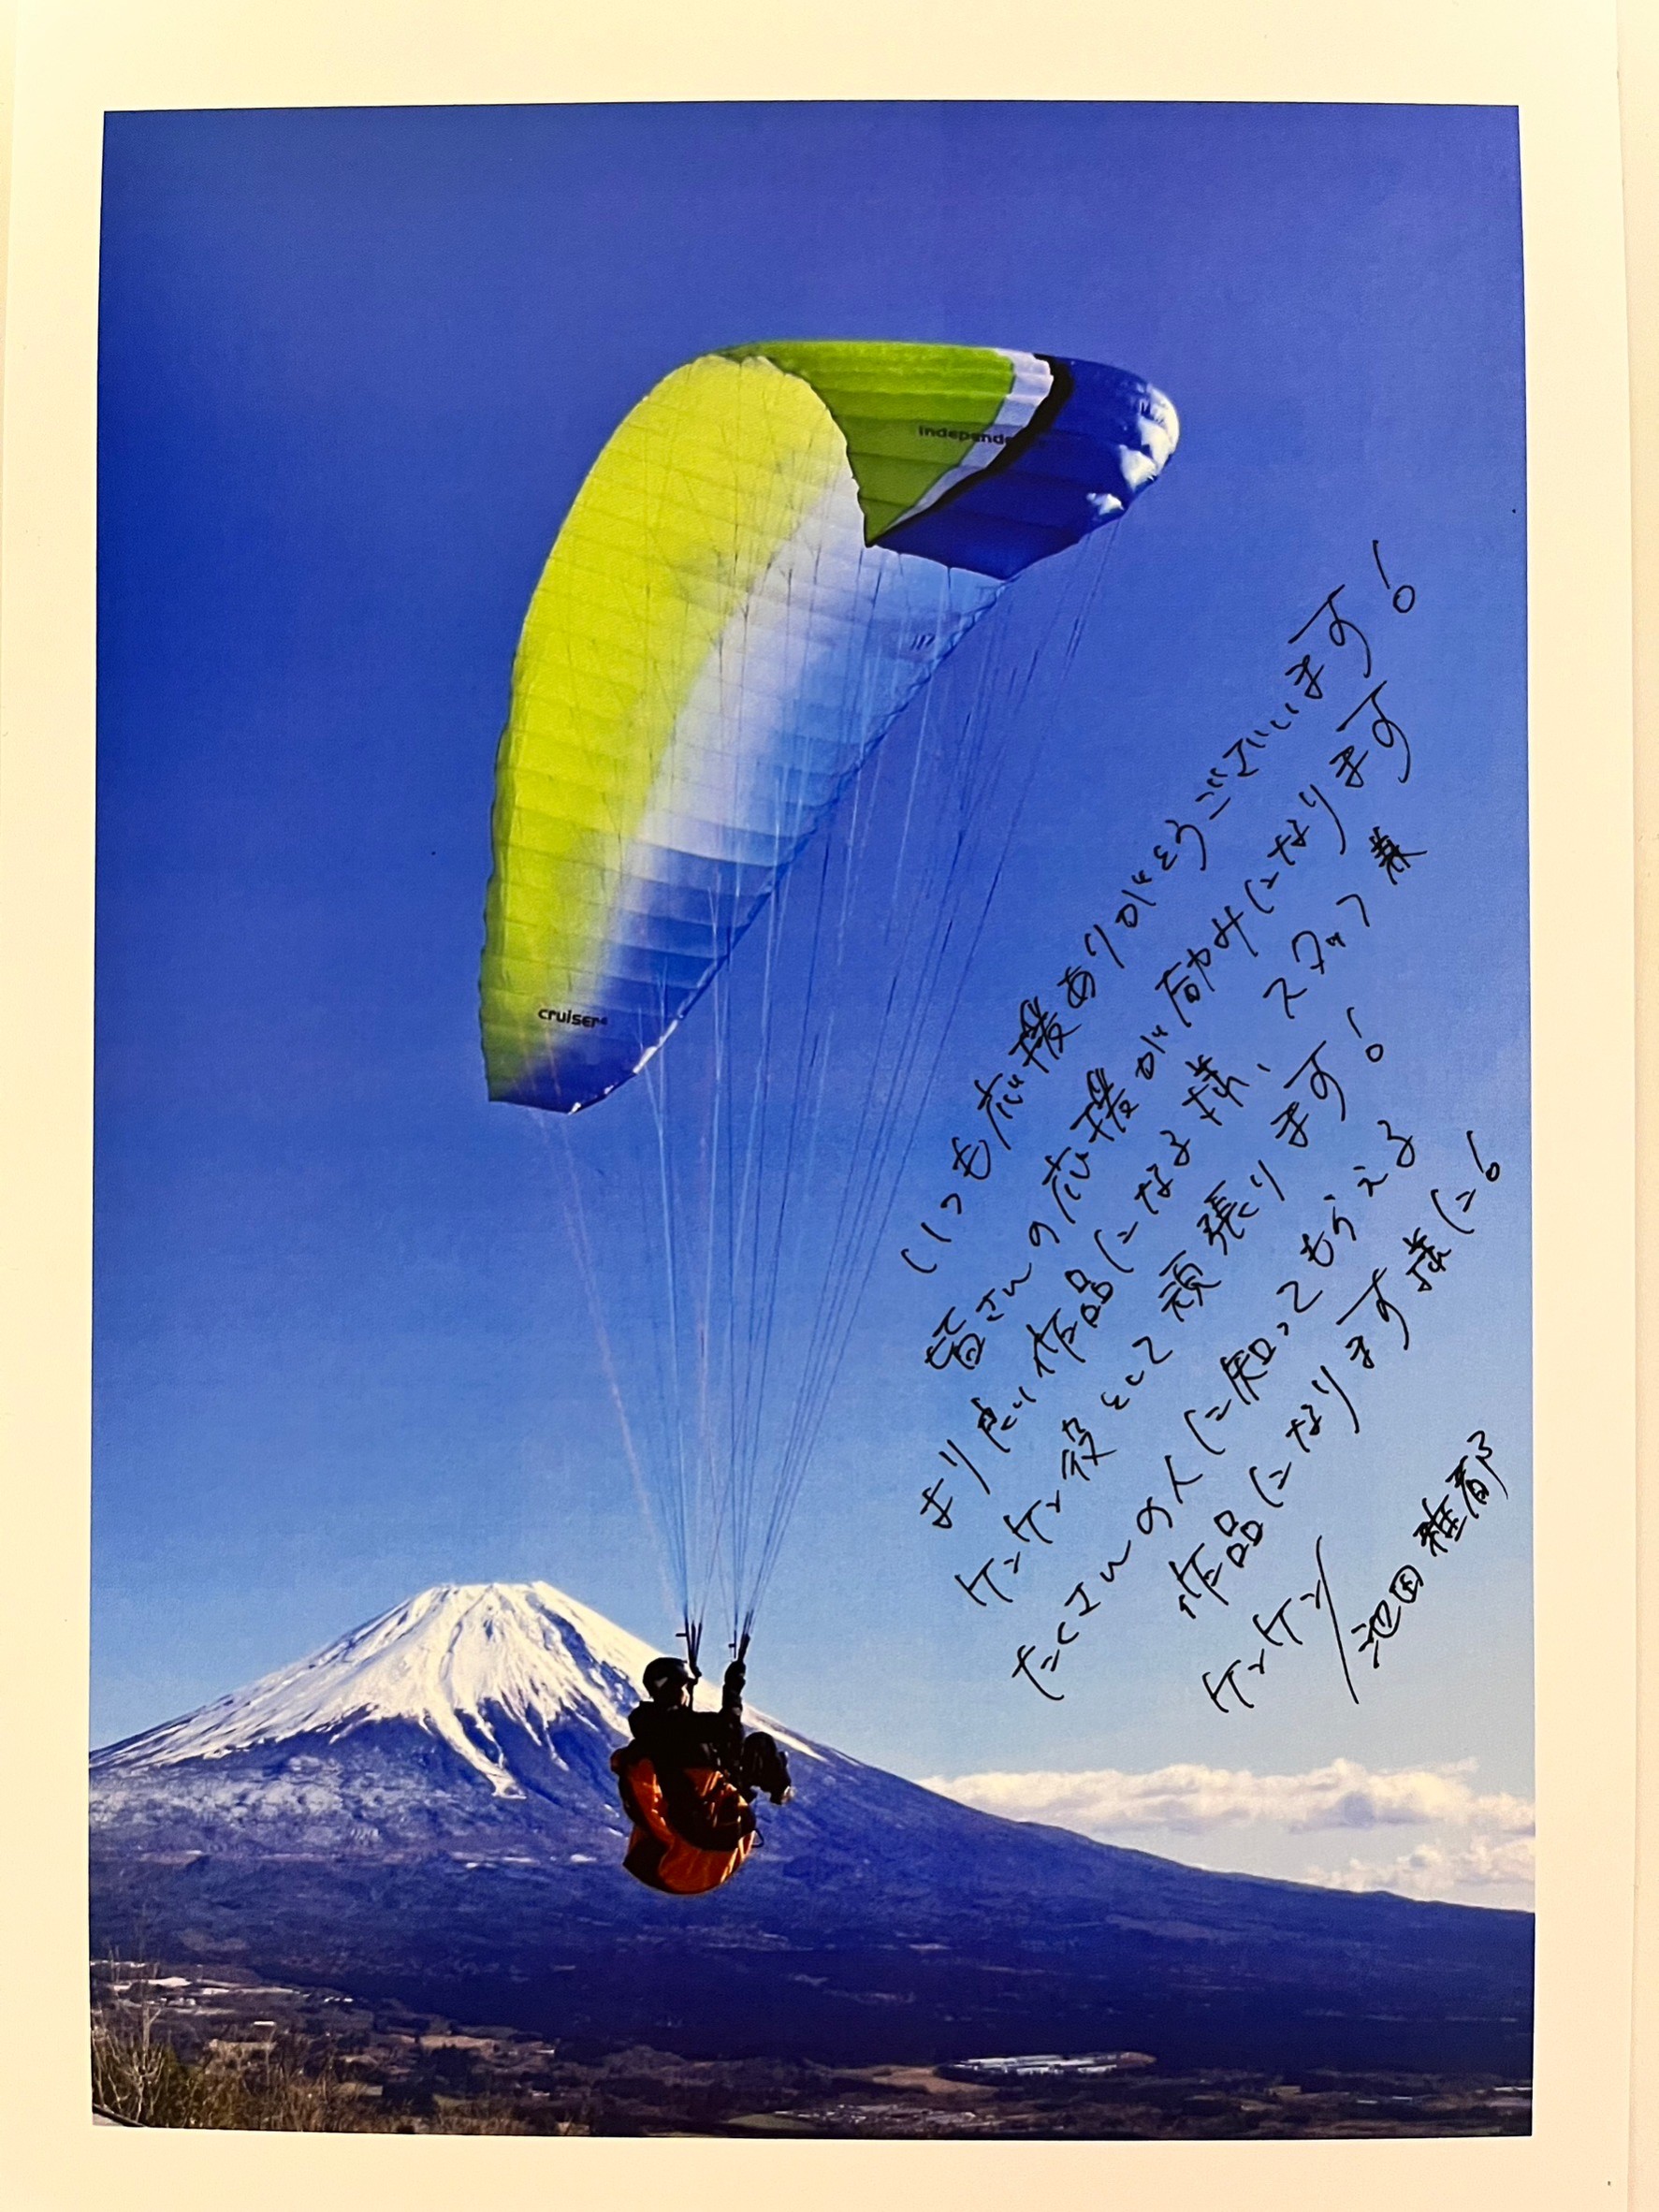 independe
cruiser4
いつも応援ありがとうございます!
皆さんの応援が励みになります
より良い作品になる様、スタッフ兼
ケンケン役として頑張ります!
たくさんの人に知ってもらえる
作品になります様に!
ケンケン/池田雅郁